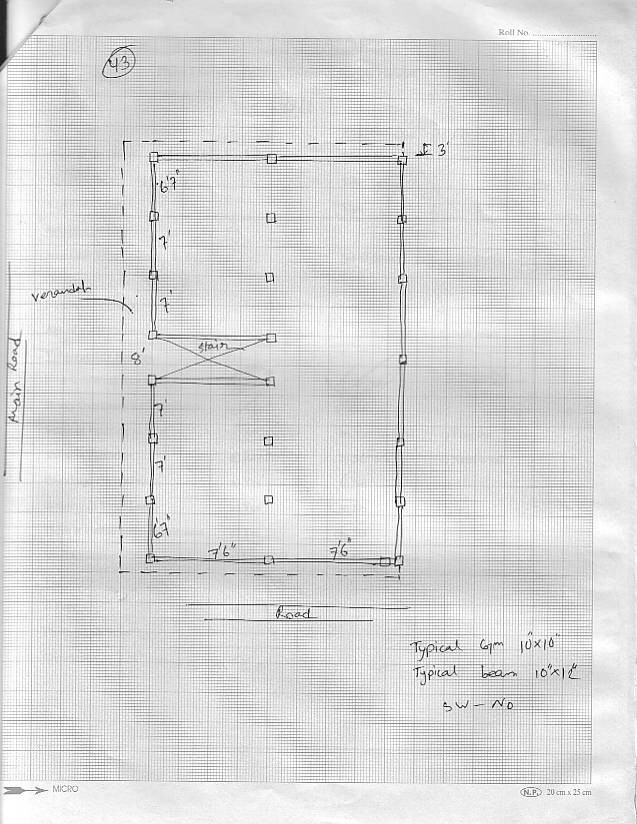 Roll No.
43
3'
6'7"
7'
7'
Verandah
Stair
8'
Main Road
7'
7'
6'7"
7'6" 7'6"
Road
Typical Colm 10"x10"
Typical beam 10"x12"
SW - NO
MICRO
N.P. 20 cm x 25 cm